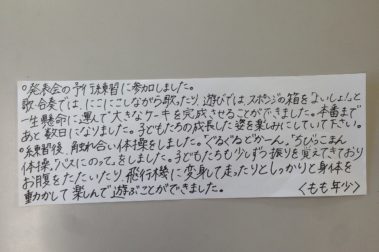 ○発表会の予行練習に参加しました。
歌・合奏では、にこにこしながら歌ったり、遊びでは、スポンジの箱を「よいしょ!」と
一生懸命に運んで大きなケーキを完成させることができました。本番まで
あと数日になりました。子どもたちの成長した姿を楽しみにしていて下さい。
○練習後、触れ合い体操をしました。「ぐるぐるどかーん」「ちびっこまん
体操」「バスにのって」をしました。子どもたちも少しずつ振りを覚えてきており
お腹をたたいたり、飛行機に変身して走ったりとしっかりと身体を
動かして楽しんで遊ぶことができました。 〈もも年少〉